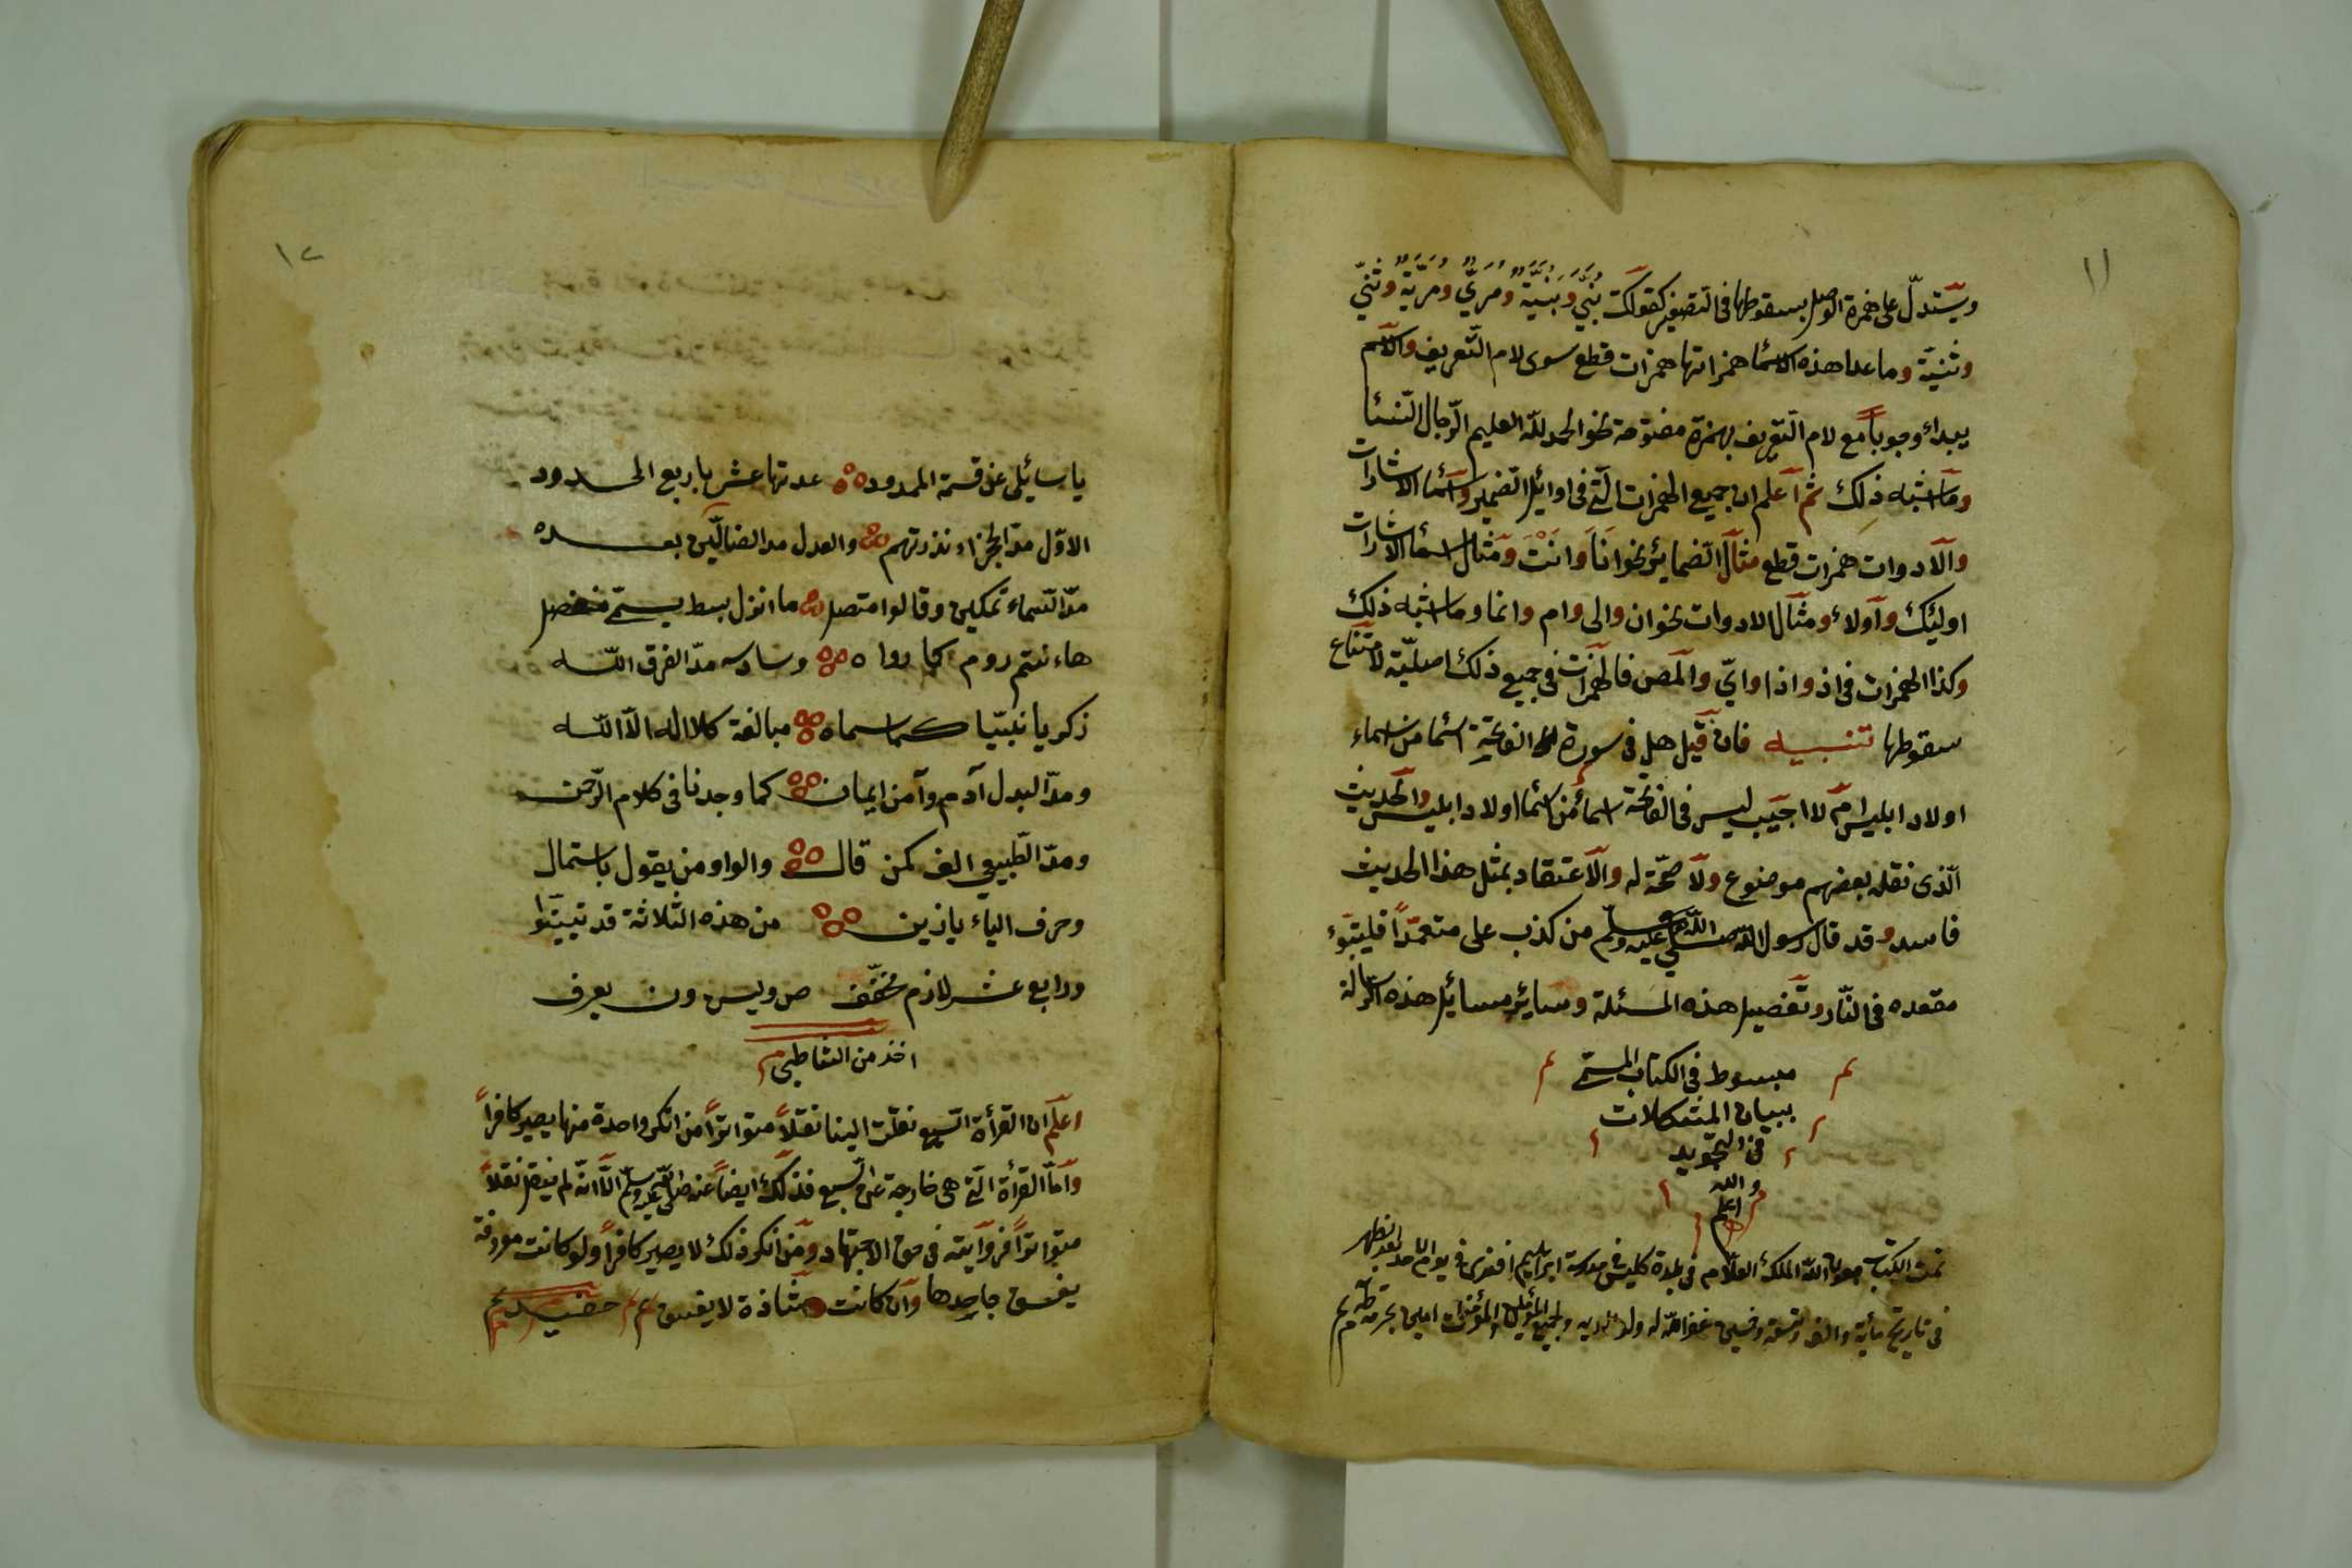 ١١
ويستدلّ على همزة الوصل بسقوطها فى التصغير كقولك بُنَيٌّ وبُنَيَّةٌ ومُرَيٌّ ومُرَيَّةٌ وثُنَيٌّ
وثنيّة وما عدا هذه الاسما همزاتها همزات قطع سوى لام التّعريف والاسم
يبداء وجوباً مع لام التّعريف بهمزة مفتوحة نحو الحمد للّه العليم الرّجال النّسا
وما اشبه ذلك ثم اعلم ان جميع الهمزات الّتى فى اوائل الضمير واسما الاشارات
والادوات همزات قطع مثال الضمائر نحو انَا وانْتَ ومثال اسما الاشارات
اولئك وآولاء ومثال الادوات نحو ان والى وام وانما وما اشبه ذلك
وكذا الهمزات فى اذ واذا واىّ والمص فالهمزات فى جميع ذلك اصليّة لامتناع
سقوطها تنبيه فان قيل هل فى سورة الفاتحة اسما من اسماء
اولاد ابليس ام لا اجيب ليس فى الفاتحة اسماء من اسما اولاد ابليس والحديث
الّذى نقله بعضهم موضوع ولا صحّة له والاعتقاد بمثل هذا الحديث
فاسد وقد قال رسول اللّه صلى اللّه عليه وسلّم من كذب على متعمّداً فليتبوّء
مقعده فى النّار وتفصيل هذه المسئلة وسائر مسائل هذه الرّسالة
مبسوط فى الكتاب المسمّى
ببيان المشكلات
فى التجويد
والله
اعلم
تمت الكتاب بعون اللّه الملك العلّام فى بلدة كليش مدرسة ابراهيم افندى فى يوم الاحد بعد الظهر
فى تاريخ مأية والف وتسعة وخمسين غفر اللّه له ولوالديه ولجميع المؤمنين والمؤمنات امين بحرمة طه م
١٢
يا سائلى عن قسمة الممدود عدتها عشر باربع الحدود
الاوّل مدّ الحجز ءانذرتهم والعدل مد الضالّين بعده
مدّ السماء تمكين وقالوا متصل ما انزل بسط يسمّى منفصل
هاءنتم روم كما رواه وسادسه مدّ الفرق اللّه
زكريا نبيّا كما سماه مبالغة كلا اله الّا اللّه
ومدّ البدل آدم وآمن ايمان كما وجدنا فى كلام الرّحمن
ومدّ الطّبيعى الف كمن قال والواو من يقول باستمال
وحرف الياء يا زين من هذه الثّلاثة قد تبيّنوا
ورابع عشر لازم مخفّف ص ويس ون يعرف
اخذ من الشاطبى
اعلم ان القرأة السّبع نقلت الينا نقلاً متواتراً من انكر واحدة منها يصير كافراً
وامّا القرأة الّتى هى خارجة عن السّبع فذلك ايضاً عنه صلى اللّه عليه وسلّم الّا انّه لم ينقل نقلاً
متواتراً فروايته فى حق الاجتهاد ومن انكر ذلك لا يصير كافراً ولو كانت معروفة
يفسق جاحدها وان كانت شاذة لا يفسق م م حفيد م